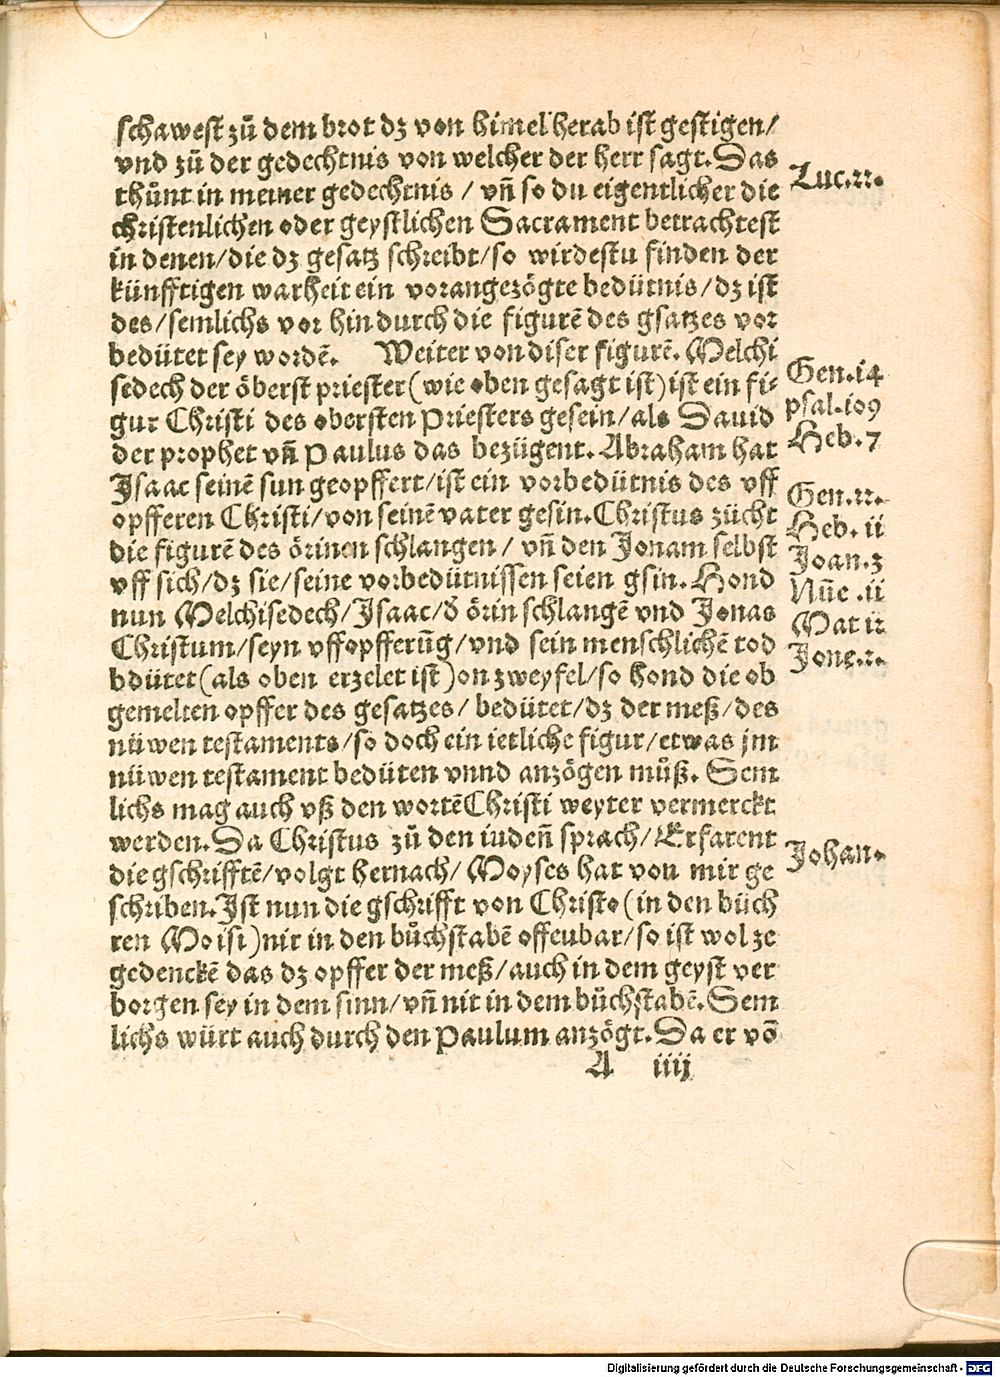 schawest zů dem brot dz von himel herab ist gestigen/
vnd zů der gedechtnis von welcher der herr sagt. Das
thůnt in meiner gedechtnis / vñ so du eigentlicher die
christenlichen oder geystlichen Sacrament betrachtest
in denen/die dz gesatz schreibt/so wirdestu finden der
künfftigen warheit ein vorangezögte bedütnis/dz ist
des/semlichs vor hin durch die figurē des gsatzes vor
bedütet sey wordē. Weiter von diser figurē. Melchi
sedech der öberst priester(wie oben gesagt ist)ist ein fi-
gur Christi des obersten Priesters gesein/als Dauid
der prophet vñ Paulus das bezügent. Abraham hat
Isaac seinē sun geopffert/ist ein vorbedütnis des vff
opfferen Christi/von seinē vater gesin. Christus zücht
die figurē des örinen schlangen / vñ den Jonam selbst
vff sich/dz sie/seine vorbedütnissen seien gsin. Hond
nun Melchisedech/Isaac/d̕ örin schlangē vnd Jonas
Christum/seyn vffopfferūg/vnd sein menschlichē tod
bdütet(als oben erzelet ist)on zweyfel/so hond die ob
gemelten opffer des gesatzes/ bedütet/dz der meß/des
nüwen testaments/so doch ein ietliche figur/etwas jm
nüwen testament bedüten vnnd anzögen můß. Sem
lichs mag auch vß den wortē Christi weyter vermerckt
werden. Da Christus zů den iudeñ sprach/Erfarent
die gschrifftē/volgt hernach/ Moyses hat von mir ge
schriben. Ist nun die gschrifft von Christo(in den büch
ren Moisi)nit in den bůchstabē offenbar/so ist wol ze
gedenckē das dz opffer der meß/auch in dem geyst ver
borgen sey in dem sinn/vñ nit in dem bůchstabē. Sem
lichs würt auch durch den Paulum anzögt. Da er vō
A iiij
Luc.22.
Gen.i4
psal.io9
Heb.7
Gen.22.
Heb. ii
Joan.3
Nūe .ii
Mat i2
Jone.2.
Johan.
Digitalisierung gefördert durch die Deutsche Forschungsgemeinschaft - DFG